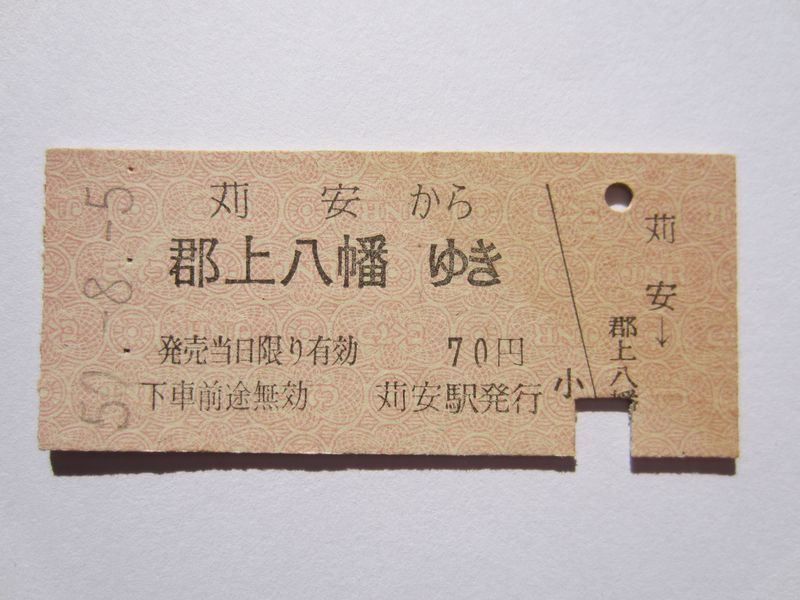 59.-8.-5
苅安から
郡上八幡ゆき
発売当日限り有効 70円
下車前途無効 苅安駅発行
小
苅安→
郡上八幡